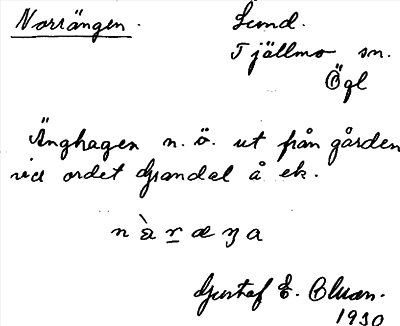 Norrängen.
Lund.
Tjällmo sn.
Ögl
Änghagen n. ö. ut från gården
vid ordet Grandal å ek.
Gustaf E.
1930